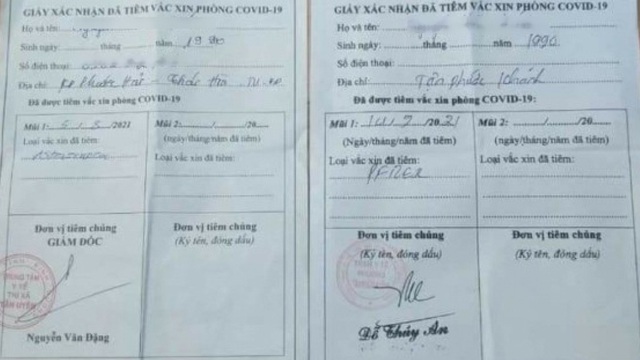 GIẤY XÁC NHẬN ĐÃ TIÊM VẮC XIN PHÒNG COVID-19
Họ và tên:
Sinh ngày: tháng năm 19
Số điện thoại:
Địa chỉ:
Đã được tiêm vắc xin phòng COVID-19
Mũi 1: 5/8/2021
Loại vắc xin đã tiêm:
Mũi 2: ....../....../20......
(ngày/tháng/năm đã tiêm)
Loại vắc xin đã tiêm:
Đơn vị tiêm chủng
GIÁM ĐỐC
TRUNG TÂM
Y TẾ
THỊ XÃ
TÂN UYÊN
Nguyễn Văn Đặng
Đơn vị tiêm chủng
(Ký tên, đóng dấu)
GIẤY XÁC NHẬN ĐÃ TIÊM VẮC XIN PHÒNG COVID-19
Họ và tên:
Sinh ngày: tháng năm 1990
Số điện thoại:
Địa chỉ: Tân Phước Khánh
Đã được tiêm vắc xin phòng COVID-19:
Mũi 1: /2021
(Ngày/tháng/năm đã tiêm)
Loại vắc xin đã tiêm:
Mũi 2: ....../....../20......
(ngày/tháng/năm đã tiêm)
Loại vắc xin đã tiêm:
Đơn vị tiêm chủng
(Ký tên, đóng dấu)
Thúy An
Đơn vị tiêm chủng
(Ký tên, đóng dấu)